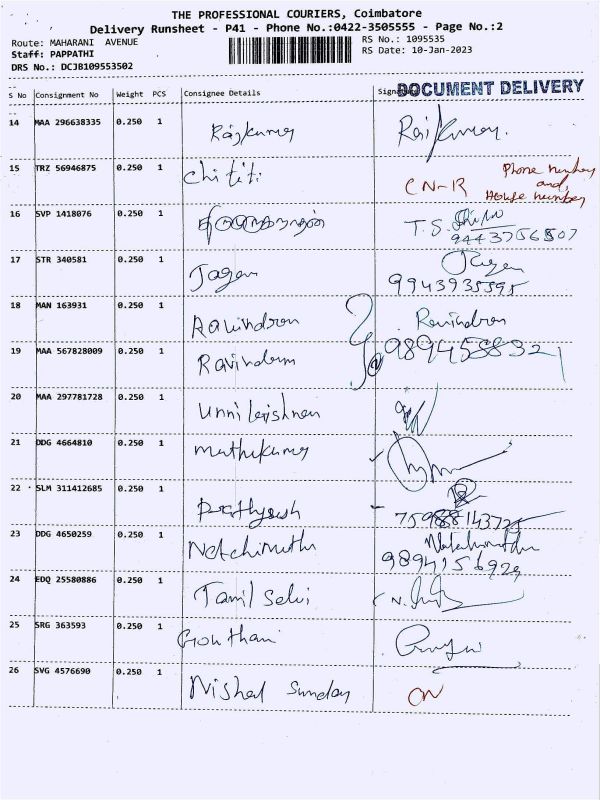 THE PROFESSIONAL COURIERS, Coimbatore
Delivery Runsheet - P41 - Phone No.:0422-3505555 - Page No.:2
Route: MAHARANI AVENUE
RS No.: 1095535
Staff: PAPPATHI
RS Date: 10-Jan-2023
DRS No.: DCJB109553502
DOCUMENT DELIVERY
S No Consignment No Weight PCS Consignee Details
14 MAA 296638335 0.250 1 Rajkumar Rajkumar.
15 TRZ 56946875 0.250 1 Chititi CN-R Phone number
and
House number
16 SVP 1418076 0.250 1 T.S.
17 STR 340581 0.250 1 Jagan
9943935595
18 MAN 163931 0.250 1 Ravindran Ravindran
19 MAA 567828009 0.250 1 Ravindran
20 MAA 297781728 0.250 1 Unni krishnan
21 DDG 4664810 0.250 1 muthukumar
22 SLM 311412685 0.250 1 Prathyush
23 DDG 4650259 0.250 1 Natchimuthu
9894156929
24 EDQ 25580886 0.250 1 Tamil Selvi
25 SRG 363593 0.250 1 Gowtham
26 SVG 4576690 0.250 1 Nishal Sunday CN